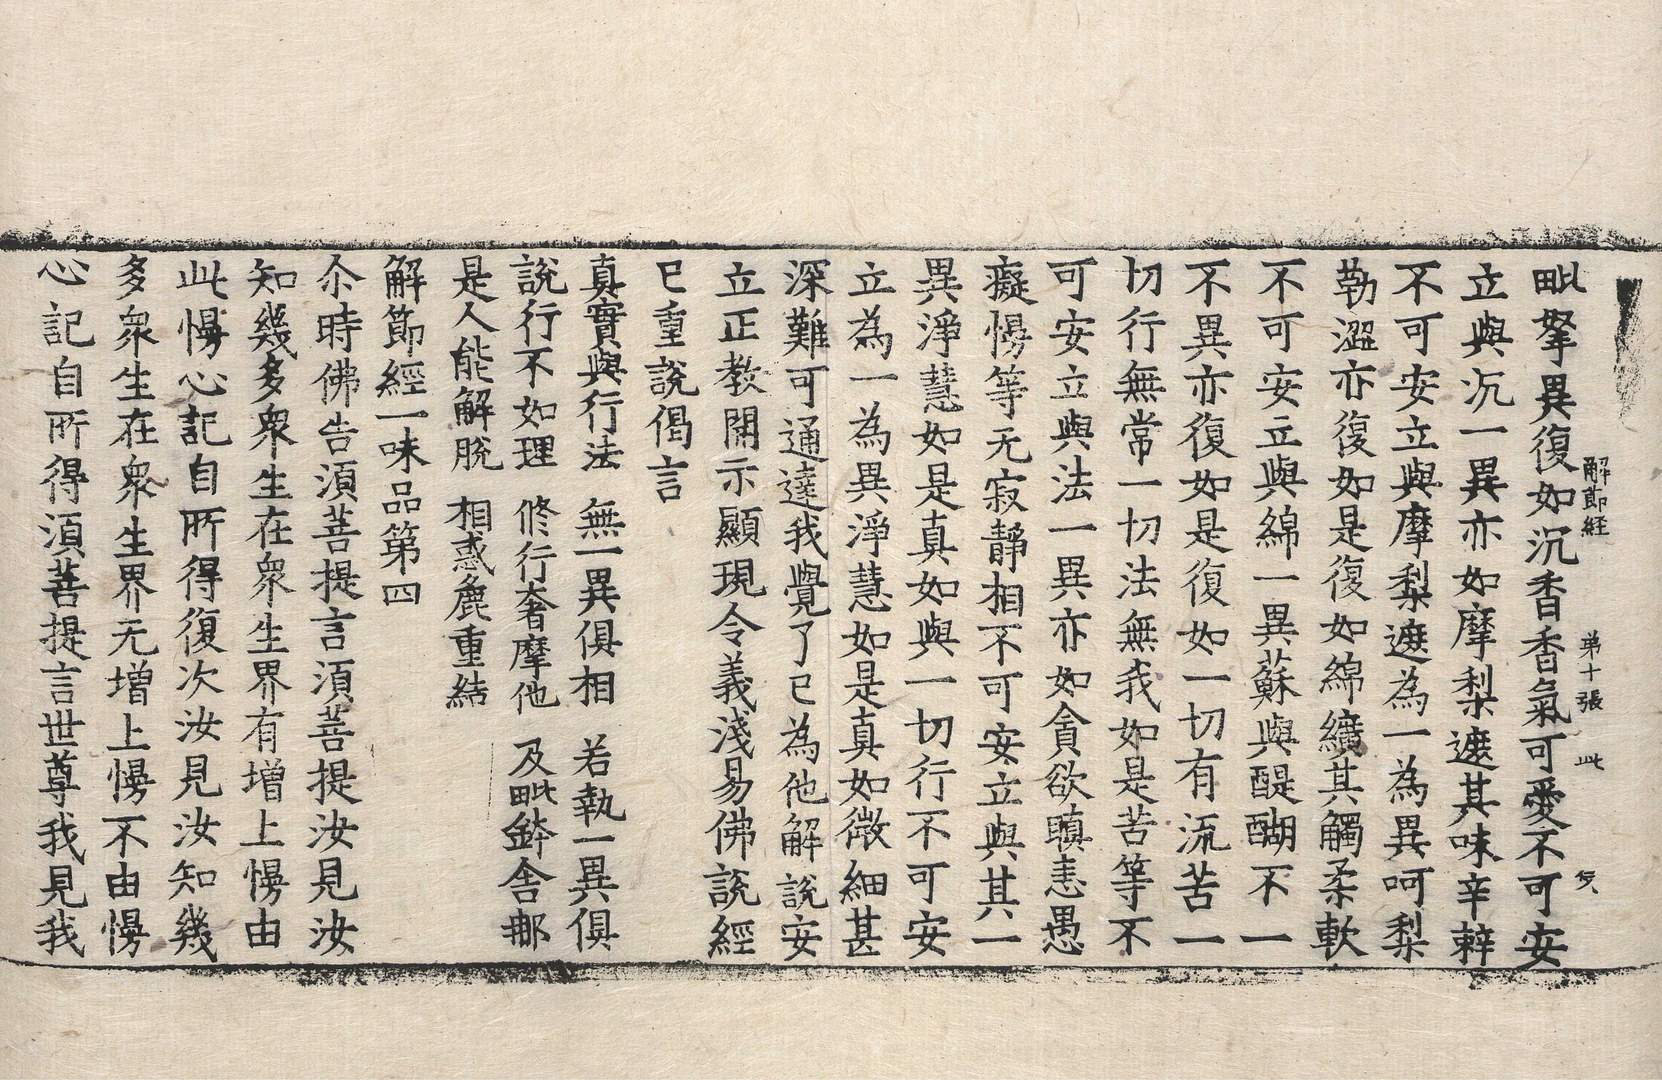 解節經 第十張 此
毗拏異復如沉香香氣可愛不可安
立與沉一異亦如摩梨遮其味辛辢
不可安立與摩梨遮為一為異呵梨
勒澀亦復如是復如綿纊其觸柔軟
不可安立與綿一異蘇與醍醐不一
不異亦復如是復如一切有流苦一
切行無常一切法無我如是苦等不
可安立與法一異亦如貪欲瞋恚愚
癡慢等无寂靜相不可安立與其一
異淨慧如是真如與一切行不可安
立為一為異淨慧如是真如微細甚
深難可通達我覺了已為他解說安
立正教開示顯現令義淺易佛說經
已重說偈言
真實與行法 無一異俱相 若執一異俱
說行不如理 修行奢摩他 及毗鉢舍那
是人能解脫 相惑麁重結
解節經一味品第四
尒時佛告須菩提言須菩提汝見汝
知幾多衆生在衆生界有增上慢由
此慢心記自所得復次汝見汝知幾
多衆生在衆生界无增上慢不由慢
心記自所得須菩提言世尊我見我